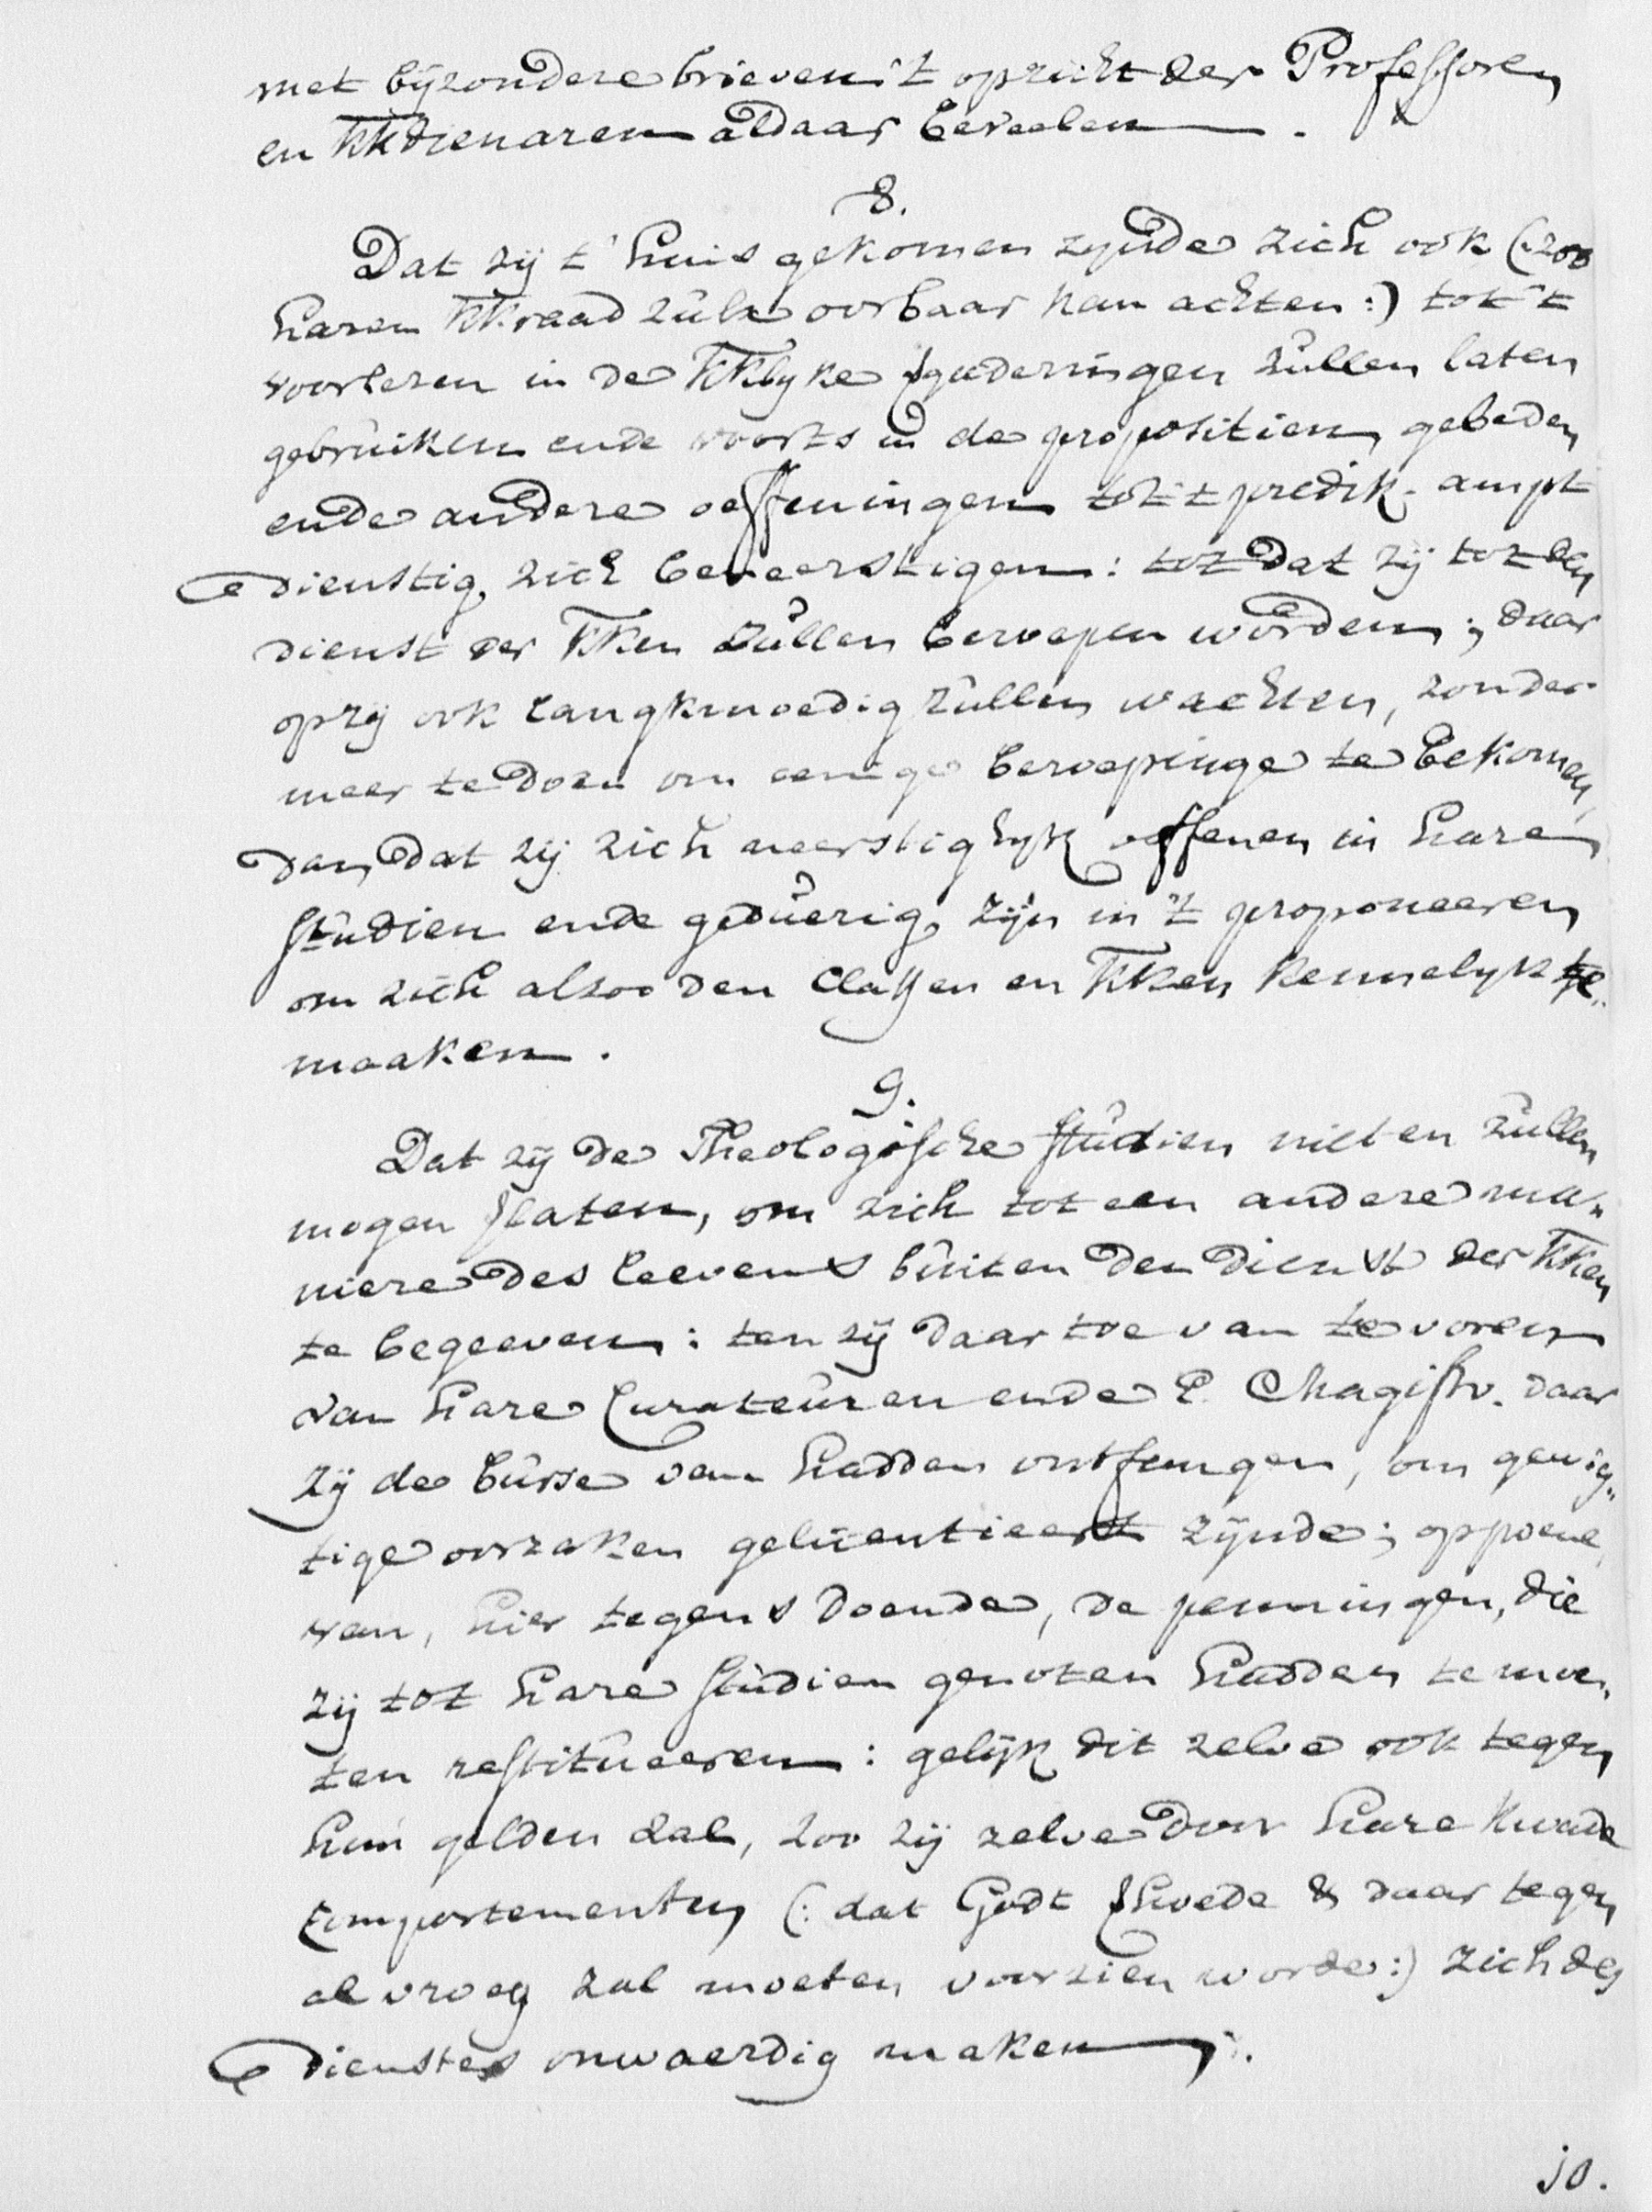 met bijzondere brieven 't opzicht der Professoren
en KKdienaren aldaar beveelen.
8.
Dat zij t' huis gekomen zynde zich ook (: zoo
haren KKraad zulx oorbaar kan achten :) tot 't
voorlezen in de KKlyke vgaderingen zullen laten
gebruiken ende voorts in de propositien, gebeden
ende andere oeffeningen tot 't predik-ampt
dienstig, zich beneerstigen : tot dat zij tot den
dienst der KKen zullen beroepen worden; daar
op zy ook langkmoedig zullen wachten, zonder
meer te doen om eenige beroepinge te bekomen,
dan dat zij zich neerstiglyk oeffenen in hare
studien ende geduerig zijn in 't proponeeren
om zich alzoo den Classen en KKen kennelyk te
maaken.
9.
Dat zij de Theologische studien niet en zullen
mogen vlaten, om zich tot een andere ma„
niere des leevens buiten den dienst der KKen
te begeeven : ten zij daar toe van te voren
van hare Curateuren ende E. Magistr. daar
zij de burse van hadden ontfangen, om gewig„
tige oorzaken gelicentieert zijnde; op poene
van, hier tegens doende, de penningen, die
zij tot hare studien genoten hadden te moe„
ten restitueeren : gelijk dit zelve ook tegen
hun gelden zal, zoo zij zelve door hare kwade
comportementen (: dat Godt vhoede & daar tegen
al vroeg zal moeten voorzien worde :) zich des
dienstes onwaerdig maken.
10.